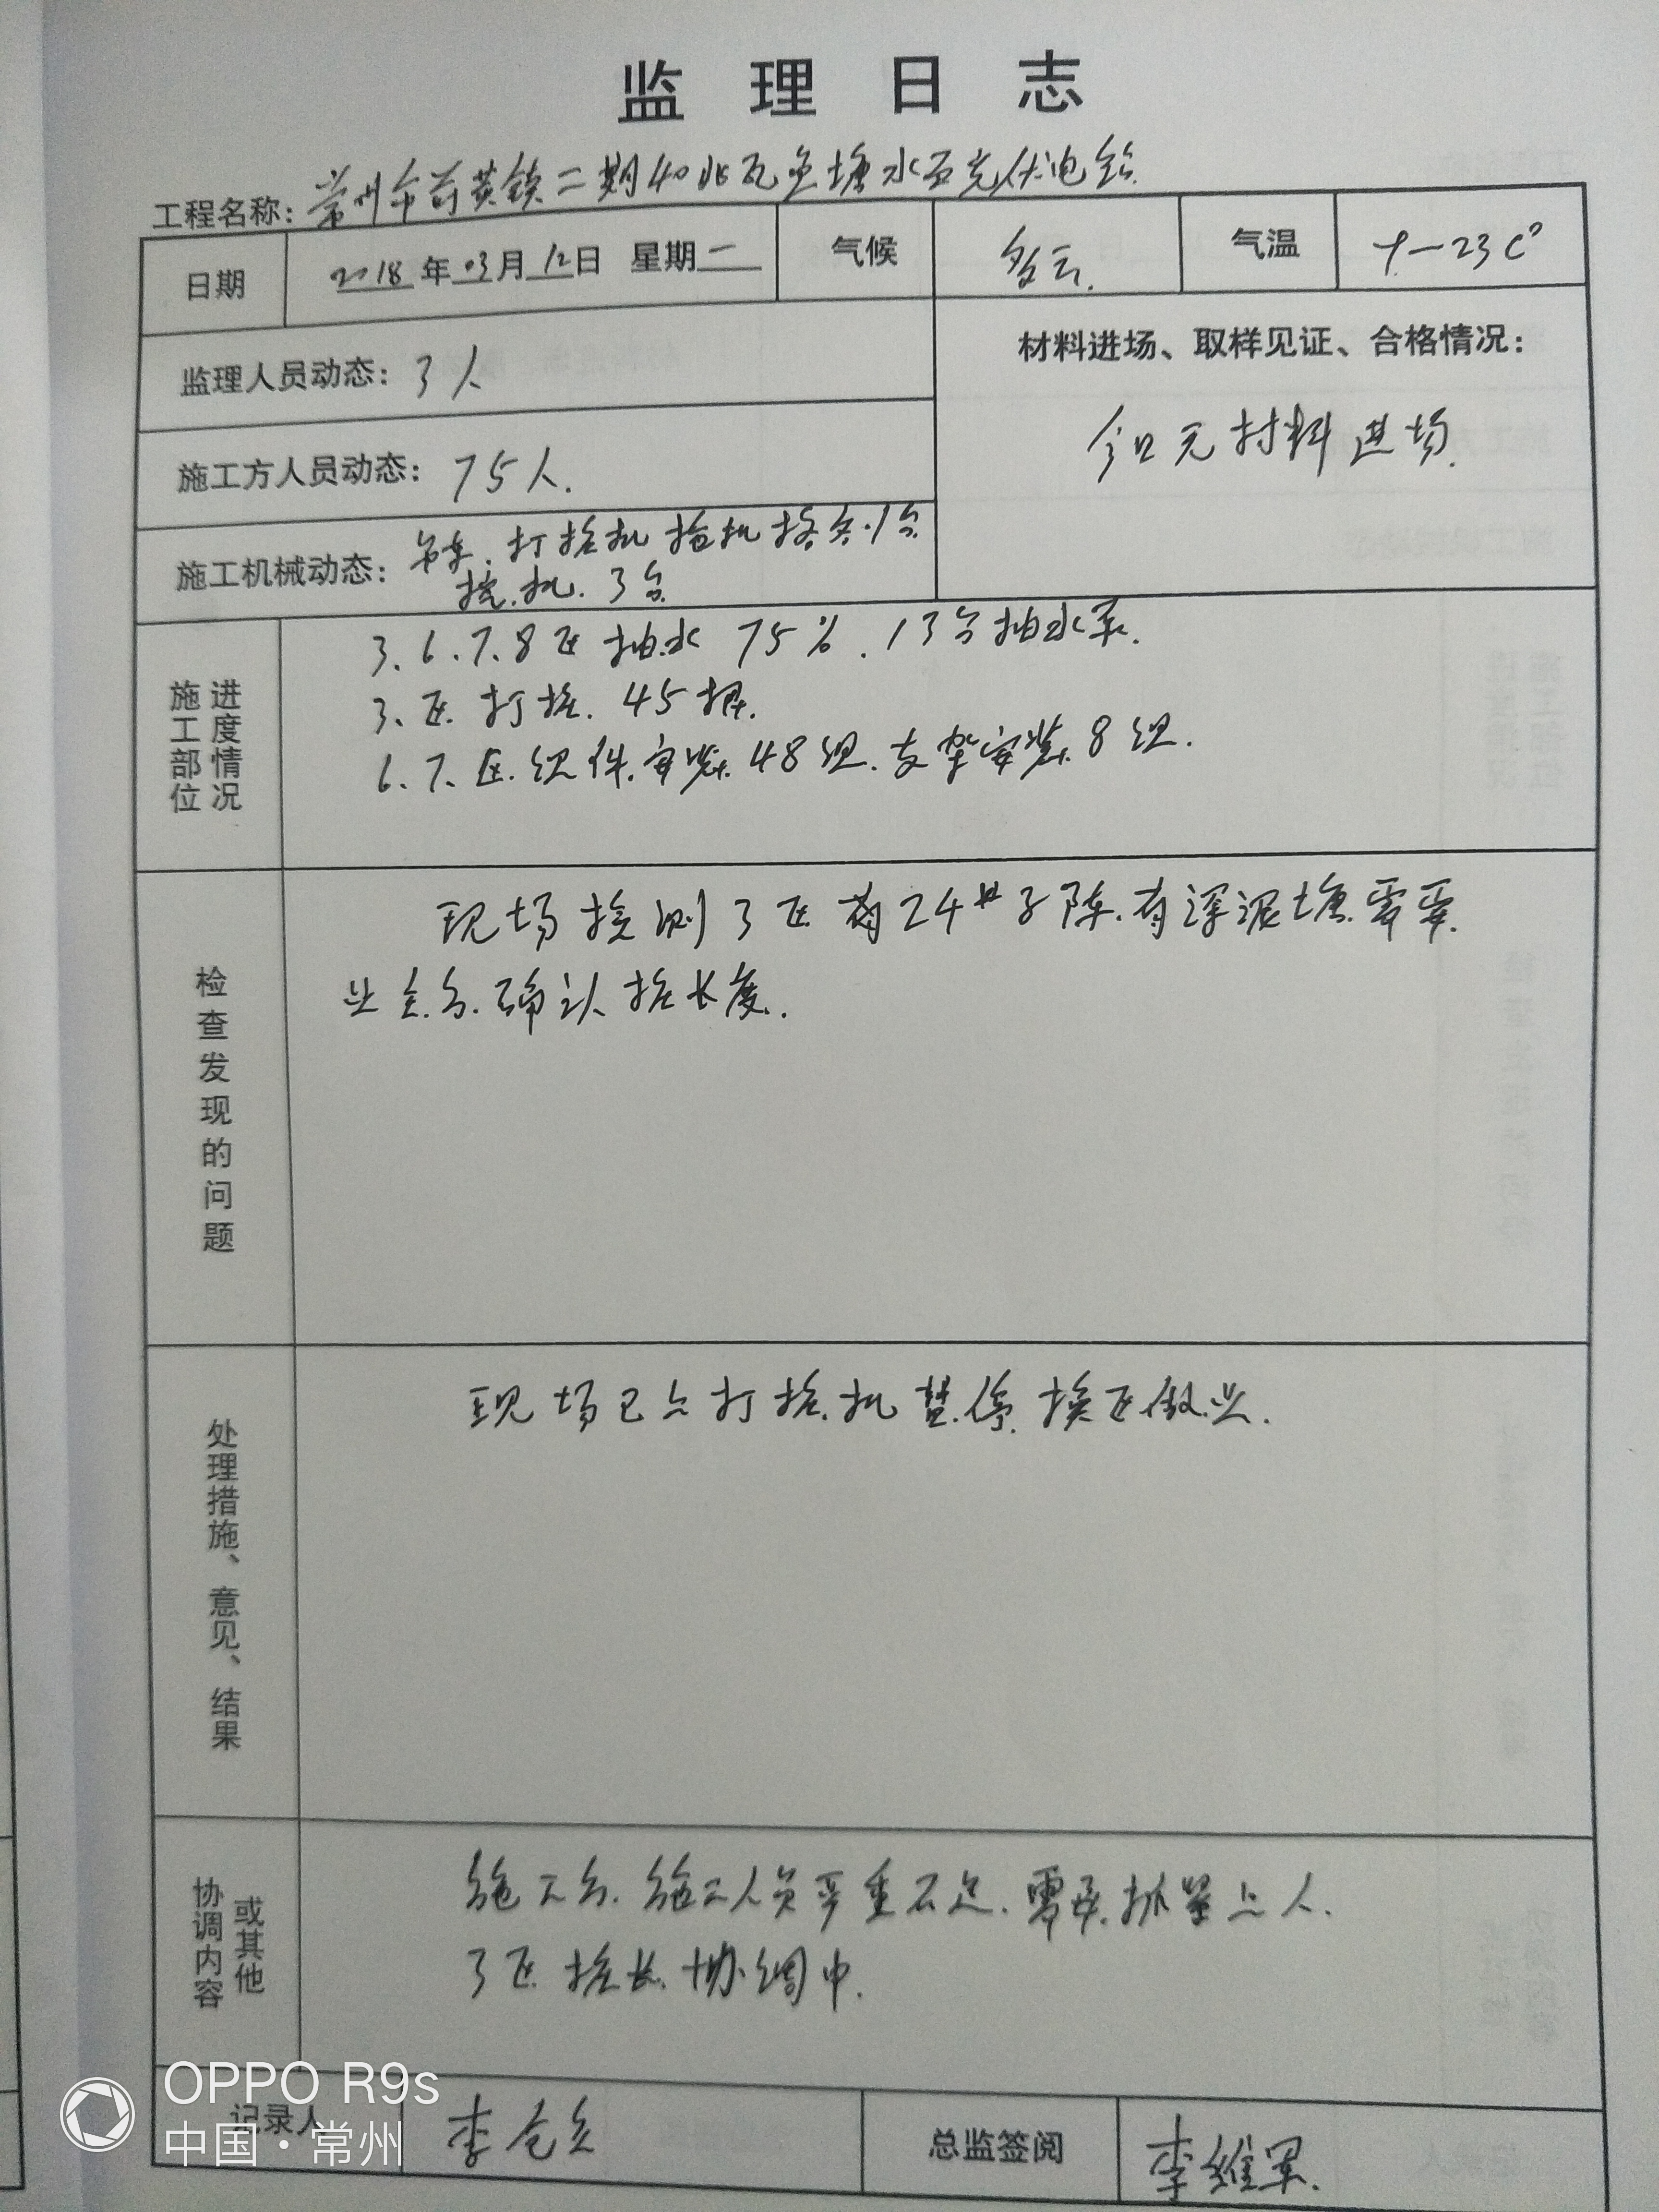 监理日志
工程名称: 常州市前黄镇二期40兆瓦鱼塘水面光伏电站
日期 2018年03月12日 星期一 气候 多云. 气温 9—23C°
监理人员动态: 3人
材料进场、取样见证、合格情况:
今日无材料进场.
施工方人员动态: 75人.
施工机械动态: 吊车.打桩机 1台
挖机.3台
施工部位进度情况
3.6.7.8区抽水75%.13台抽水泵.
3.区打桩.45根.
6.7.区.组件.安装.48组.支架安装.8组.
检查发现的问题
现场检测3区 24#子阵.有深泥塘.需要.
业主.方.确认桩长度.
处理措施、意见、结果
现场已 打桩.机暂.停.换区做.业.
协调内容或其他
施工方.施工人员严重不足.需要.抓紧上人.
3区桩长.协调中.
记录人 李
总监签阅 李维军.
OPPO R9s
中国·常州